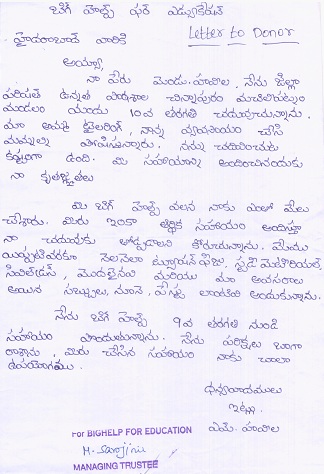 బిగ్ హెల్ప్ ఫర్ ఎడ్యుకేషన్
హైదరాబాద్ వారికి
Letter to Donor
అయ్యా
నా పేరు మెండు.హవాల. నేను జిల్లా
పరిషత్ ఉన్నత పాఠశాల చిన్నాపురం మచిలీపట్నం
మండలం యందు 10వ తరగతి చదువుచున్నాను.
మా అమ్మ టైలరింగ్, నాన్న వ్యవసాయం చేసి
మమ్మల్ని పోషిస్తున్నారు. నన్ను చదివించుటకు
కష్టంగా ఉంది. మీ సహాయాన్ని అందించినందుకు
నా కృతజ్ఞతలు
మీ బిగ్ హెల్ప్ వలన నాకు ఎంతో మేలు
చేశారు. మీరు ఇంకా ఆర్థిక సహాయం అందిస్తూ
నా చదువుకు తోడ్పడాలని కోరుచున్నాను. మేము
ఇప్పటివరకూ నెలనెలా ట్యూషన్ ఫీజు, స్టడీ మెటీరియల్,
మొదలైనవి మరియు మా అవసరాలు
అయిన సబ్బులు, నూనె, పేస్ట్ లాంటివి అందుకున్నాను.
నేను బిగ్ హెల్ప్ 9వ తరగతి నుండి
సహాయం పొందుతున్నాను. నేను పరీక్షలు బాగా
రాశాను, మీరు చేసిన సహాయం నాకు చాలా
ఉపయోగము.
ధన్యవాదములు
ఇట్లు
ఎమ్. హవాల
For BIGHELP FOR EDUCATION
M. Sarojini
MANAGING TRUSTEE